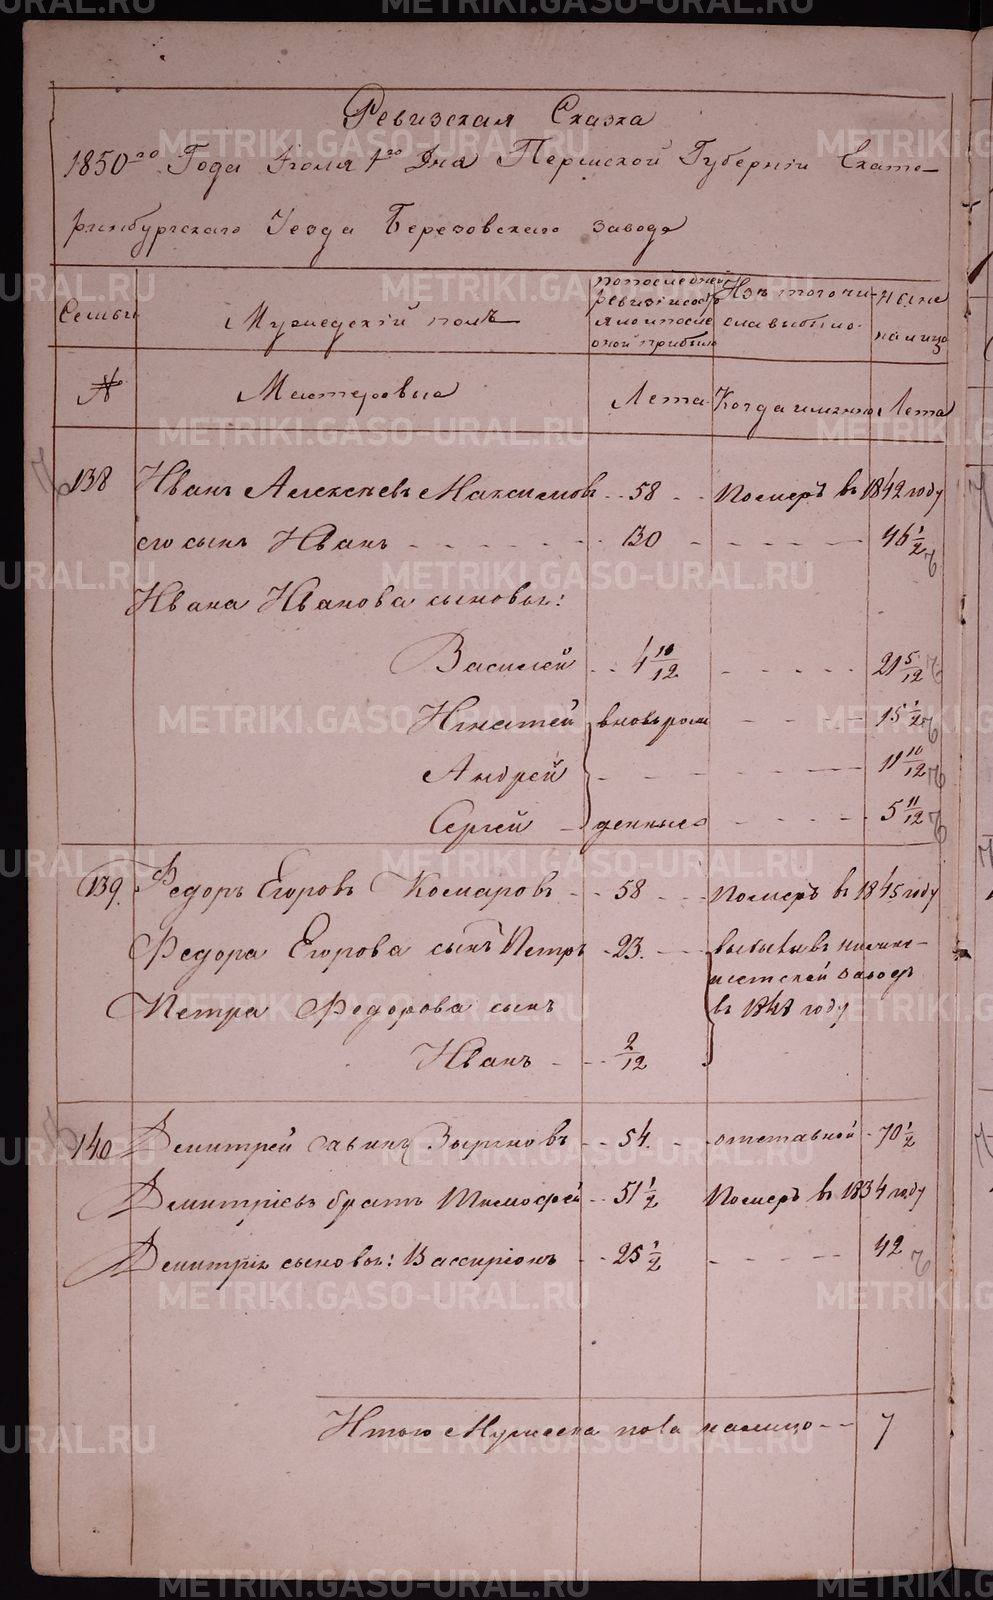 Ревизская Сказка
1850го Года Июля 1го Дня Пермской Губернiи Екате-
ринбургскаго Уезда Березовскаго завода
Семьи
Мужескiй полъ
по последней
ревизiи состо
яло и после
оной прибыло
Изъ того чи-
сла выбыло
Ныне
на лицо
№
Мастеровые
Лета
Когда именно
Лета
138 Иванъ Алексеевъ Максимовъ 58 Померъ въ 1842 году
его сынъ Иванъ 30 46 1/2
Ивана Иванова сыновья:
Василей 4 10/12 21 5/12
Игнатей вновь рож 15 1/2
Андрей 11 10/12
Сергей денные 5 11/12
139. Федоръ Егоровъ Комаровъ 58 Померъ въ 1845 году
Федора Егорова сынъ Петръ 23. выбылъ въ нижне-
исетской заводъ
Петра Федорова сынъ въ 1848 году
Иванъ 2/12
140 Дмитрей Савинъ Зыряновъ 54 отставной 70 1/2
Дмитрiевъ братъ Тимофей 51 1/2 Померъ въ 1834 году
Дмитрiя сыновья: Вассирiонъ 25 1/2 42
Итого Мужеска пола налицо 7
METRIKI.GASO-URAL.RU